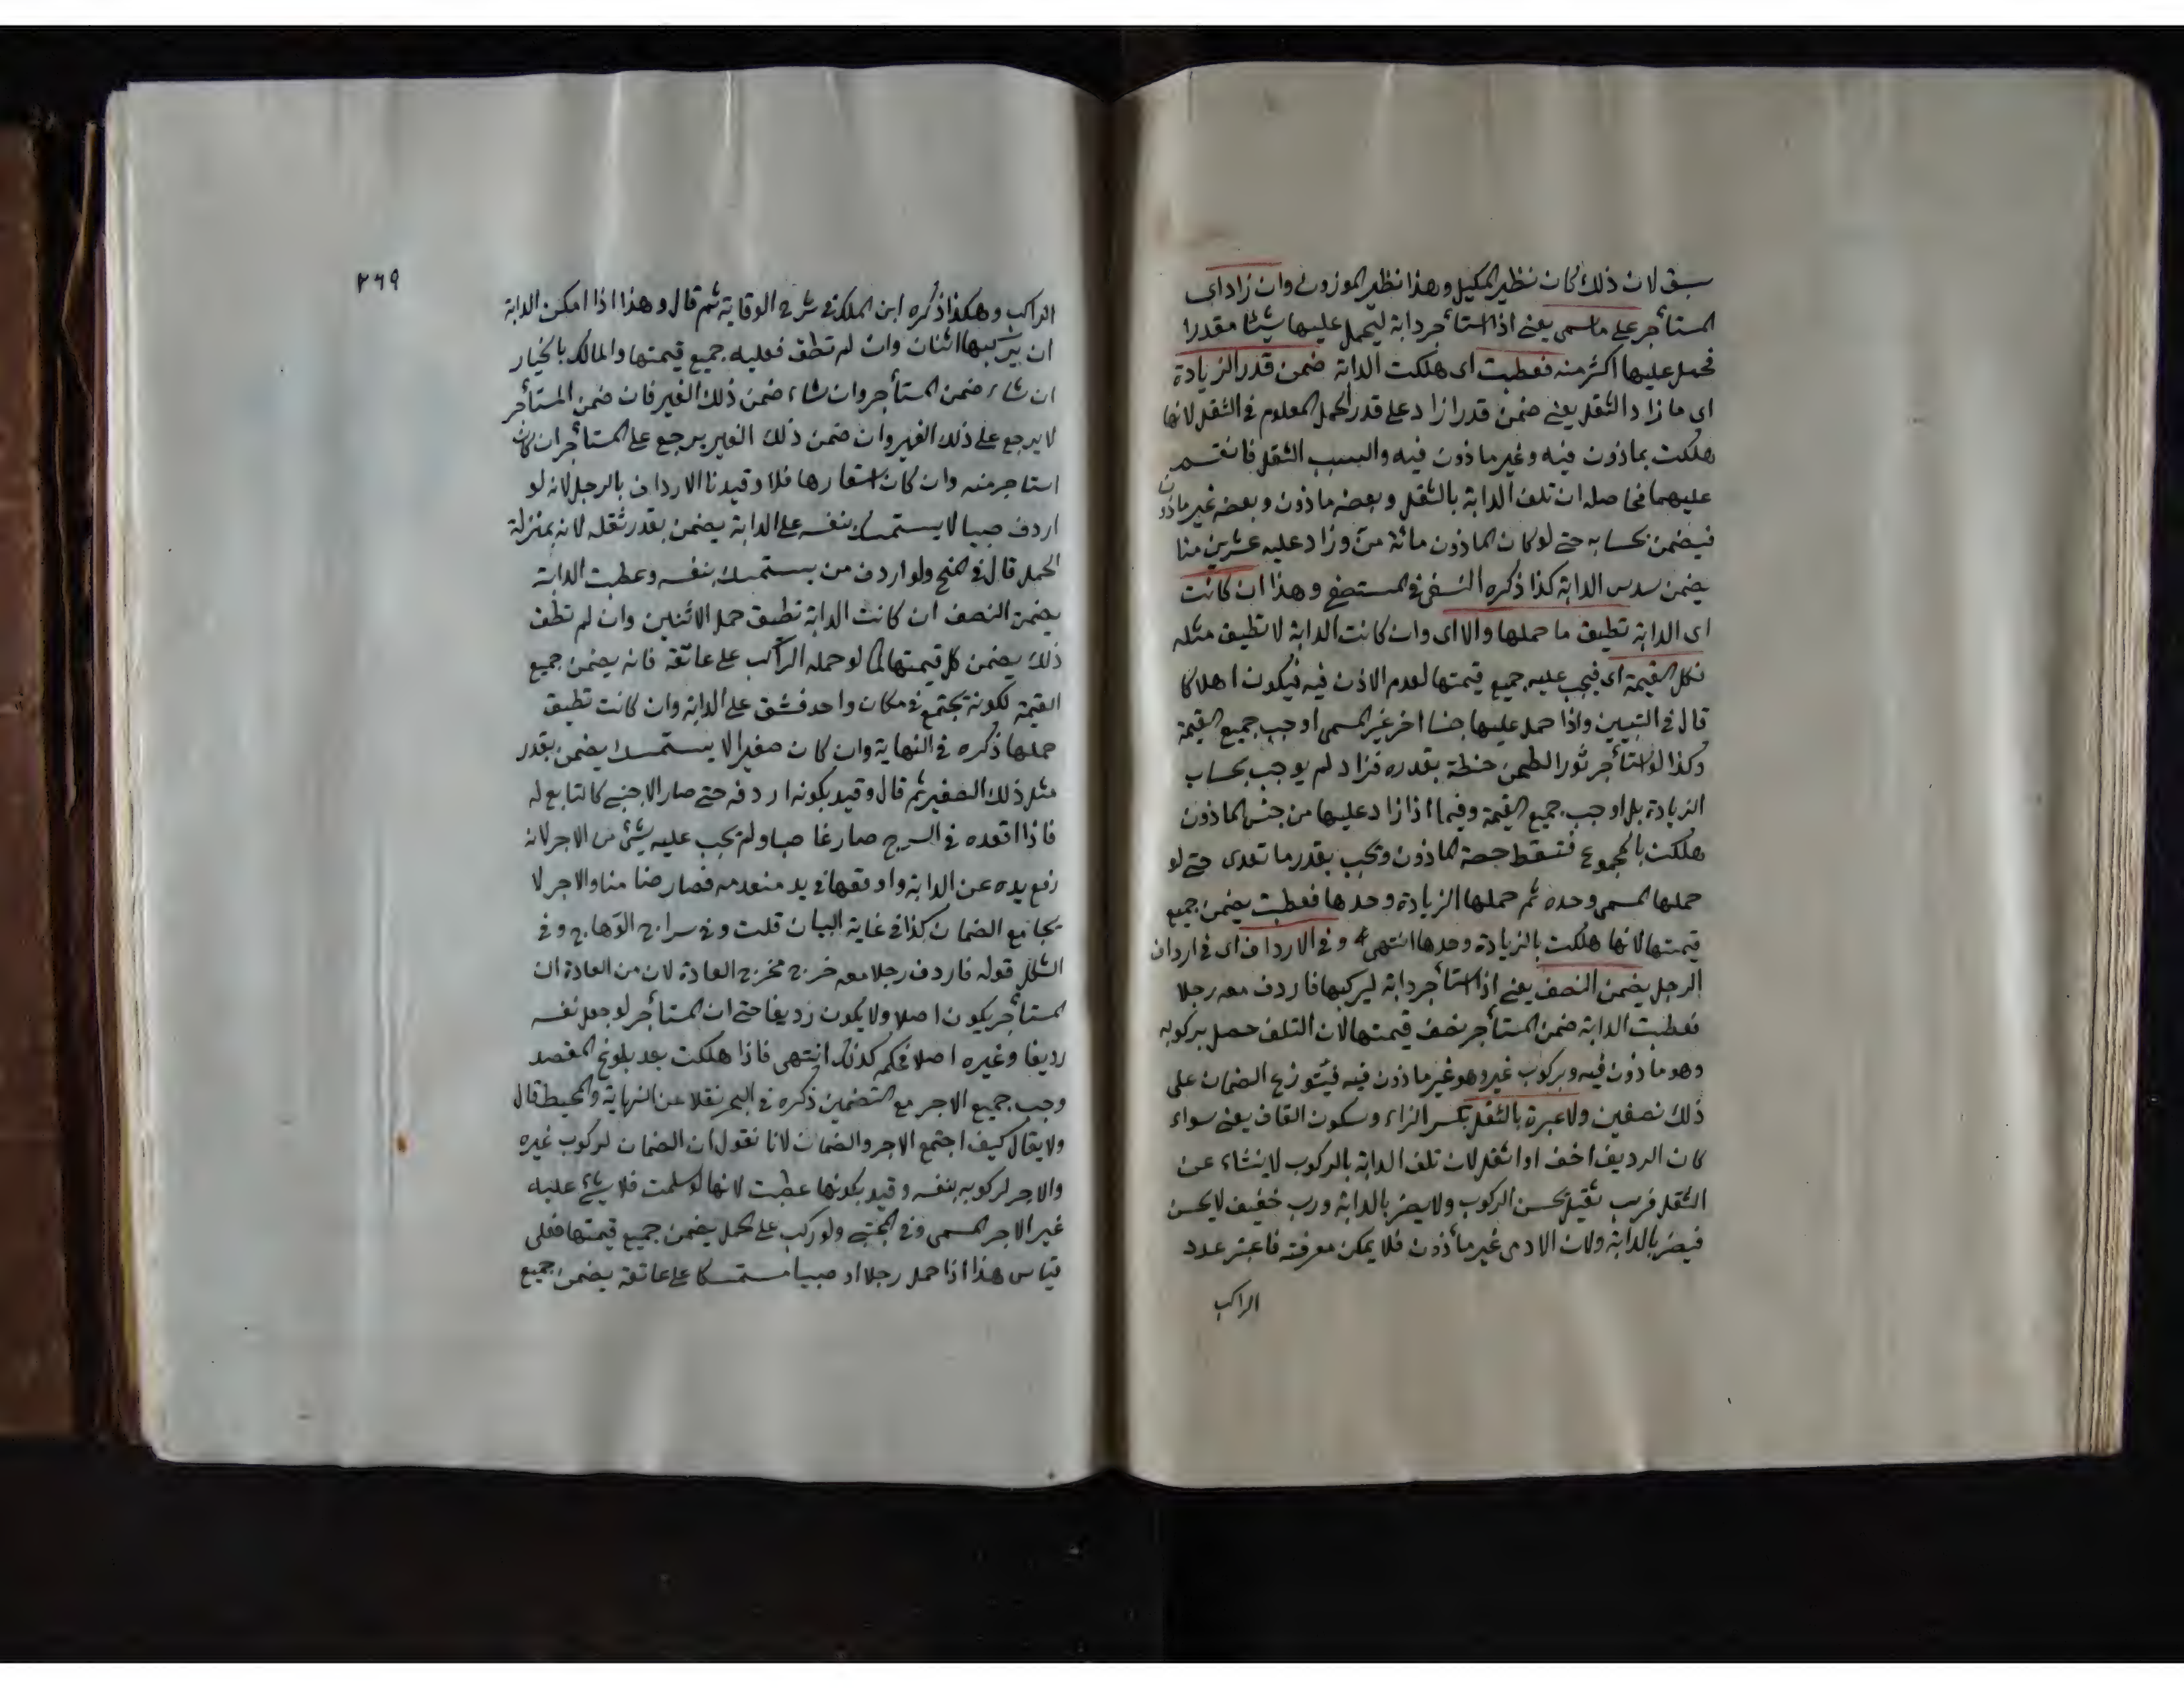 سبق لان ذلك كان نظير المكيل وهذا نظير الموزون وان زاد اى
المستأجر على ما سمى يعنى اذا استأجر دابة ليحمل عليها شيئا مقدرا
فحمل عليها اكثر منه فعطبت اى هلكت الدابة ضمن قدر الزيادة
اى ما زاد الثقل يعنى ضمن قدر ازاد على قدر الحمل المعلوم فى الثقل لانها
هلكت بماذون فيه وغير ماذون فيه والسبب الثقل فانقسم
عليهما فحاصله ان تلف الدابة بالثقل وبعضه ماذون وبعضه غير ماذون
فيضمن بحسابه حتى لو كان الماذون مائة من وزاد عليه عشرين منا
يضمن سدس الدابة كذا ذكره النسفى فى المستصفى وهذا ان كانت
اى الدابة تطيق ما حملها والا اى وان كانت الدابة لا تطيق مثله
فكل القيمة اى فيجب عليه جميع قيمتها لعدم الاذن فيه فيكون اهلاكا
قال فى التبيين واذا حمل عليها جنسا اخر غير المسمى اوجب جميع القيمة
وكذا لو استأجر ثورا لطحن حنطة بقدره فزاد لم يوجب بحساب
الزيادة بل اوجب جميع القيمة وفيما اذا زاد عليها من جنس الماذون
هلكت بالمجموع فتسقط حصة الماذون وتجب بقدر ما تعدى حتى لو
حملها المسمى وحده ثم حملها الزيادة وحدها فعطبت يضمن جميع
قيمتها لانها هلكت بالزيادة وحدها انتهى وفى الارداف اى فى ارداف
الرجل يضمن النصف يعنى اذا استأجر دابة ليركبها فاردف معه رجلا
فعطبت الدابة ضمن المستأجر نصف قيمتها لان التلف حصل بركوبه
وهو ماذون فيه وبركوب غيره وهو غير ماذون فيه فيتوزع الضمان على
ذلك نصفين ولا عبرة بالثقل بكسر الزاء وسكون القاف يعنى سواء
كان الرديف اخف او اثقل لان تلف الدابة بالركوب لا ينشاء عن
الثقل فرب ثقيل يحسن الركوب ولا يضر بالدابة ورب خفيف لا يحسن
فيضر بالدابة ولان الادمى غير مأذون فلا يمكن معرفته فاعتبر عدد
الراكب
٢٦٩
الراكب وهكذا ذكره ابن الملك فى شرح الوقاية ثم قال وهذا اذا امكن الدابة
ان يركبها اثنان وان لم تطق فعليه جميع قيمتها والمالك بالخيار
ان شاء ضمن المستأجر وان شاء ضمن ذلك الغير فان ضمن المستأجر
لا يرجع على ذلك الغير وان ضمن ذلك الغير يرجع على المستأجر ان كان
استاجر منه وان كان استعارها فلا وقيدنا الارداف بالرجل لانه لو
اردف صبيا لا يستمسك بنفسه على الدابة يضمن بقدر ثقله لانه بمنزلة
الحمل قال فى المنح ولو اردف من يستمسك بنفسه وعطبت الدابة
يضمن النصف ان كانت الدابة تطيق حمل الاثنين وان لم تطق
ذلك يضمن كل قيمتها كما لو حمله الراكب على عاتقه فانه يضمن جميع
القيمة لكونه يجتمع فى مكان واحد فشق على الدابة وان كانت تطيق
حملها ذكره فى النهاية وان كان صغيرا لا يستمسك يضمن بقدر
مثل ذلك الصغير ثم قال وقيد بكونه اردفه حتى صار الاجنبى كالتابع له
فاذا اقعده فى السرج صار غاصبا ولم يجب عليه شئ من الاجر لانه
رفع يده عن الدابة واوقفها فى يد منعدمه فصار ضامنا والاجر لا
يجامع الضمان كذا فى غاية البيان قلت وفى سراج الوهاج وفى
الشكل قوله فاردف رجلا معه خرج مخرج العادة لان من العادة ان
المستأجر يكون اصلا ولا يكون رديفا حتى ان المستأجر لو جعل نفسه
رديفا وغيره اصلا فحكمه كذلك انتهى فاذا هلكت بعد بلوغ المقصد
وجب جميع الاجر مع التضمين ذكره فى البحر نقلا عن النهاية والمحيط قال
ولا يقال كيف اجتمع الاجر والضمان لانا نقول ان الضمان لركوب غيره
والاجر لركوبه بنفسه وقيد بكونها عطبت لانها لو سلمت فلا شئ عليه
غير الاجر المسمى وفى المجتبى ولو ركب على حمل يضمن جميع قيمتها فعلى
قياس هذا اذا حمل رجلا او صبيا مستمسكا على عاتقه يضمن جميع